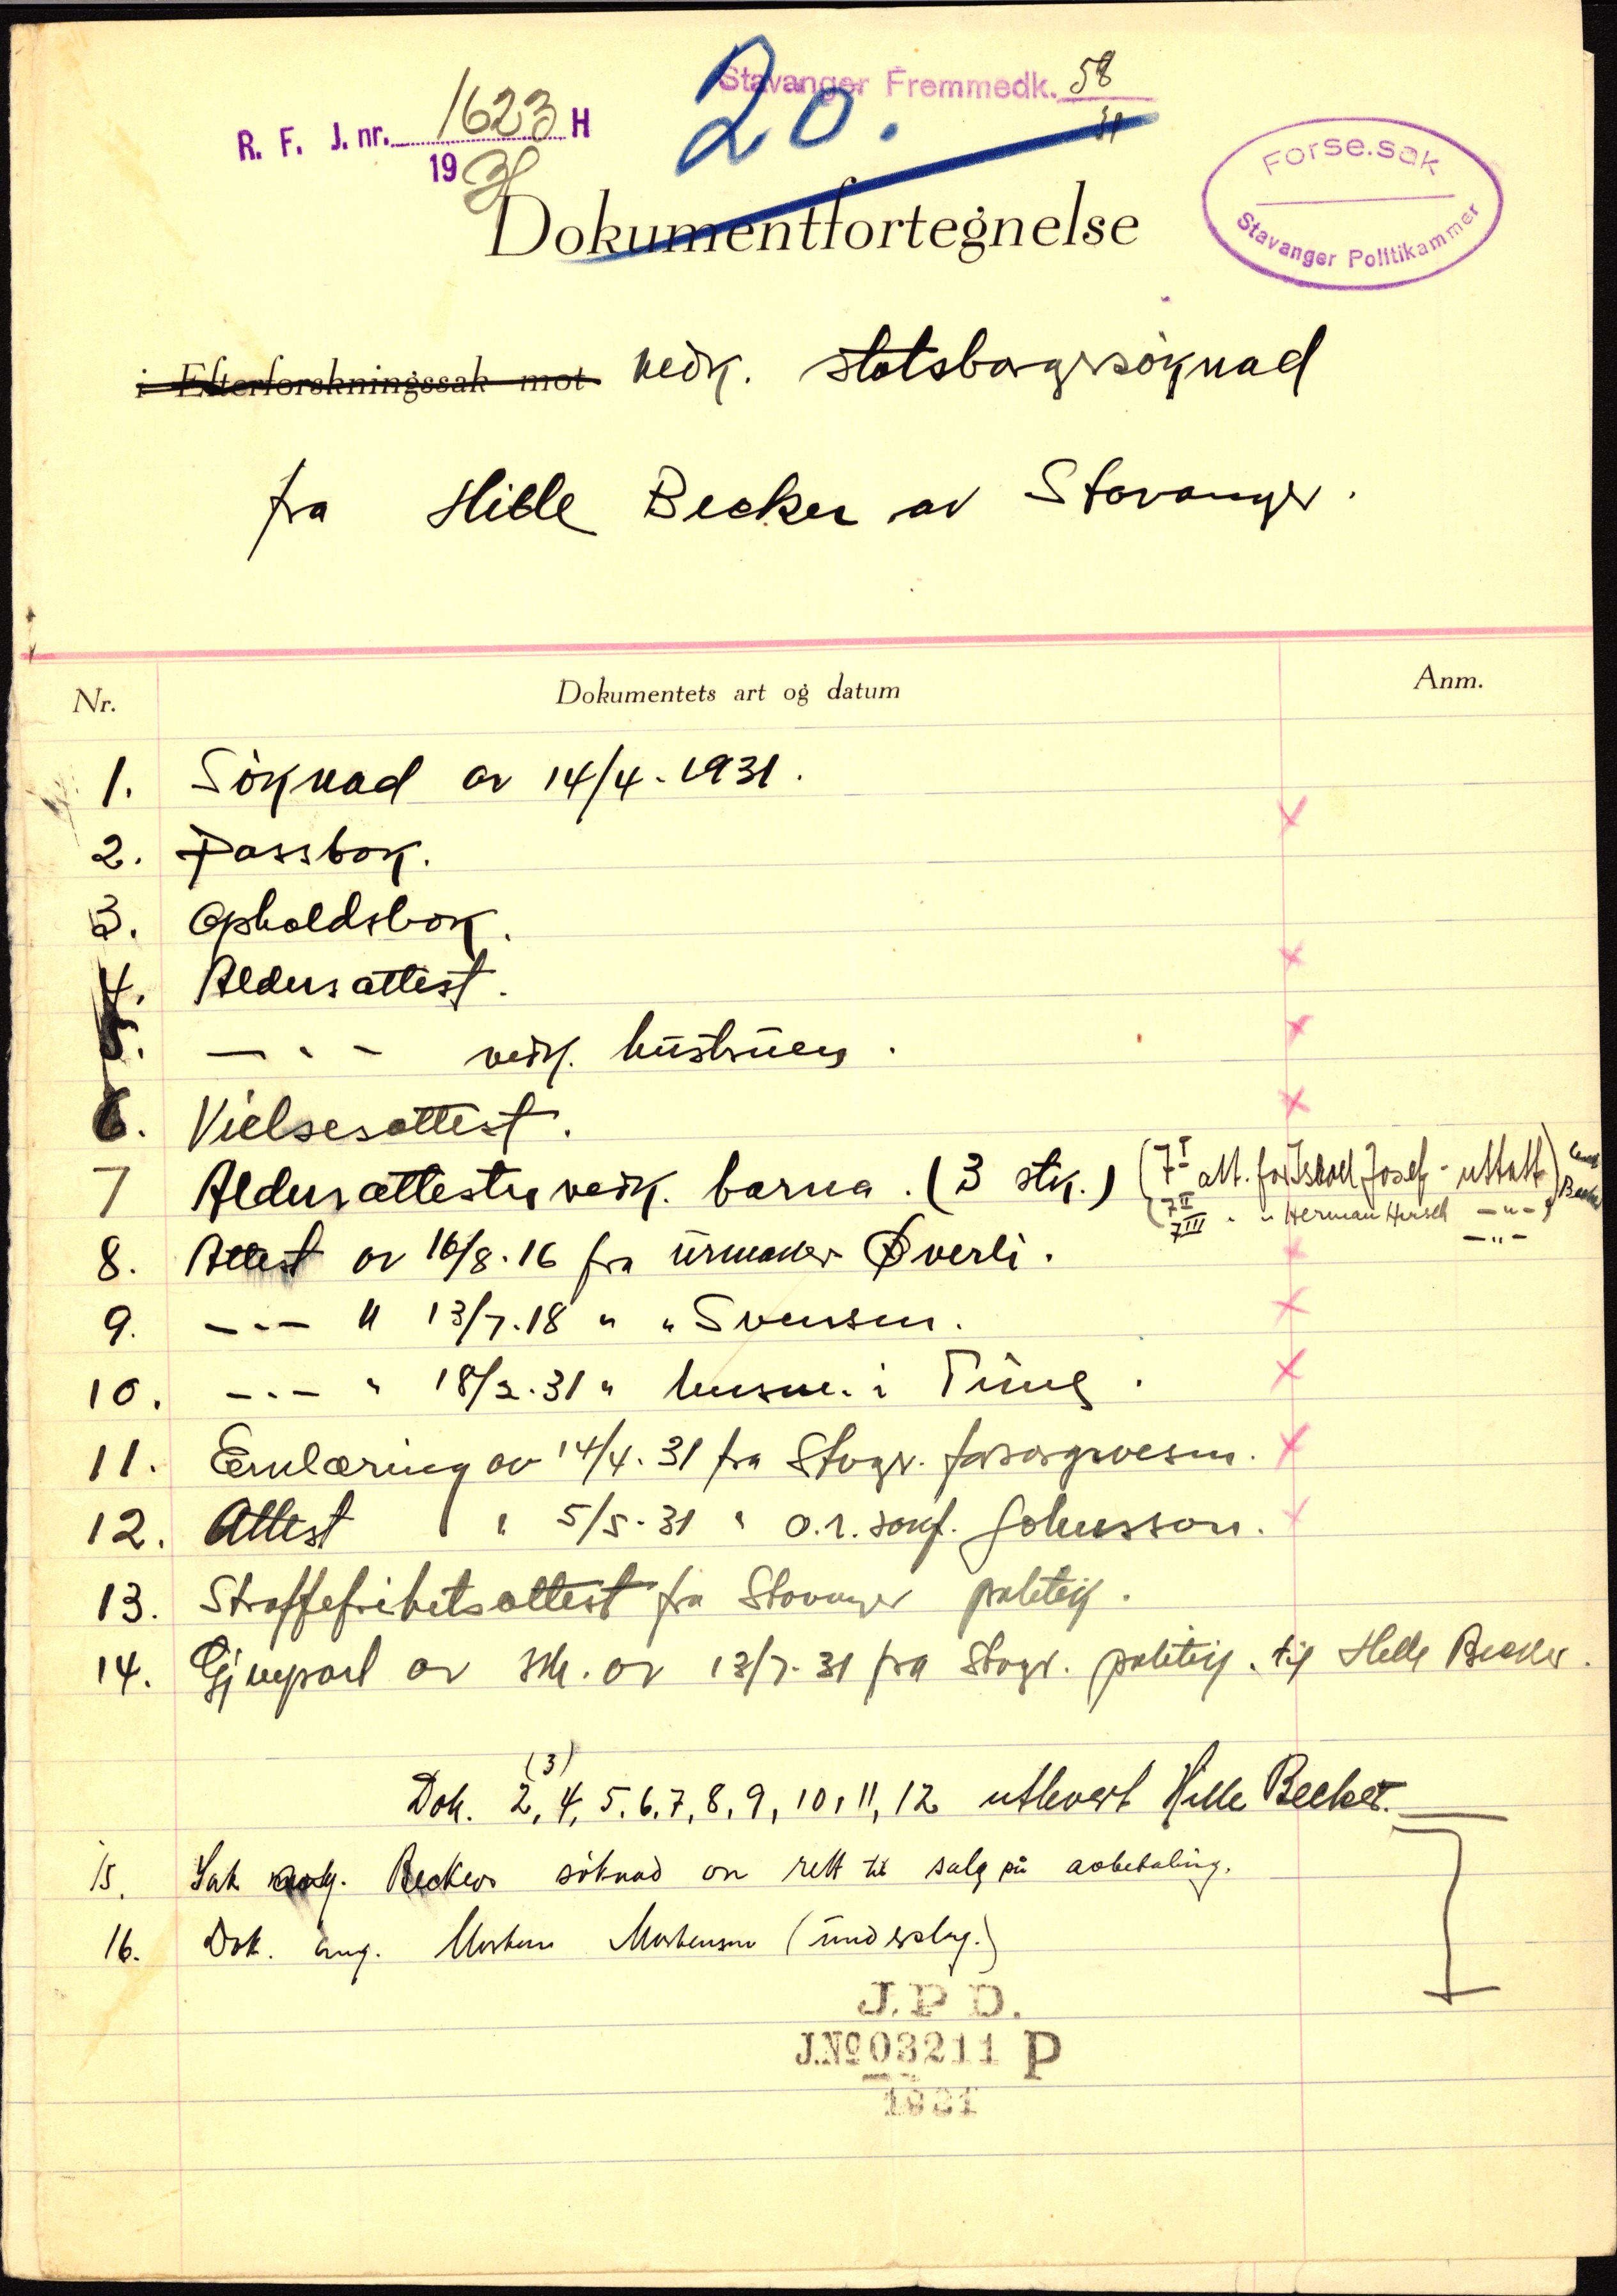 Stavanger Fremmedk. 58
31
20.
R. F. J. nr. 1623 H
1931
Forse.sak
Stavanger Politikammer
Dokumentfortegnelse
i Efterforskningssak mot vedk. statsborgersöknad
fra Hille Becker av Stavanger.
Nr. Dokumentets art og datum Anm.
1. Söknad av 14/4-1931.
2. Passbok.
3. Opholdsbok.
4. Aldersattest.
5. — " — vedk. hustruen.
6. Vielsesattest.
7 Aldersattester vedk. barna. (3 stk.) (7I att. for Israel Josef - uttatt)
(7II " " Herman Hirsch — " —)
7III — " —
Becker
8. Attest av 16/8.16 fra urmaker Øverli.
9. — " — " 13/7.18 " " Svensen.
10. — " — " 18/2.31 " lensm. i Time.
11. Erklæring av 14/4.31 fra Stvgr. forsorgsvesen.
12. Attest " 5/5-31 " o.r.sakf. Johnsson.
13. Straffefrihetsattest fra Stavanger politik.
14. Gjenpart av skr. av 13/7.31 fra Stvgr. politik. til Hille Becker.
(3)
Dok. 2, 4, 5, 6, 7, 8, 9, 10, 11, 12 utlevert Hille Becker.
15. Sak Beckers söknad om rett til salg på avbetaling.
16. Dok. ang. Morten Mortensen (underslag.)
J.P D.
J.No 03211 P
1931